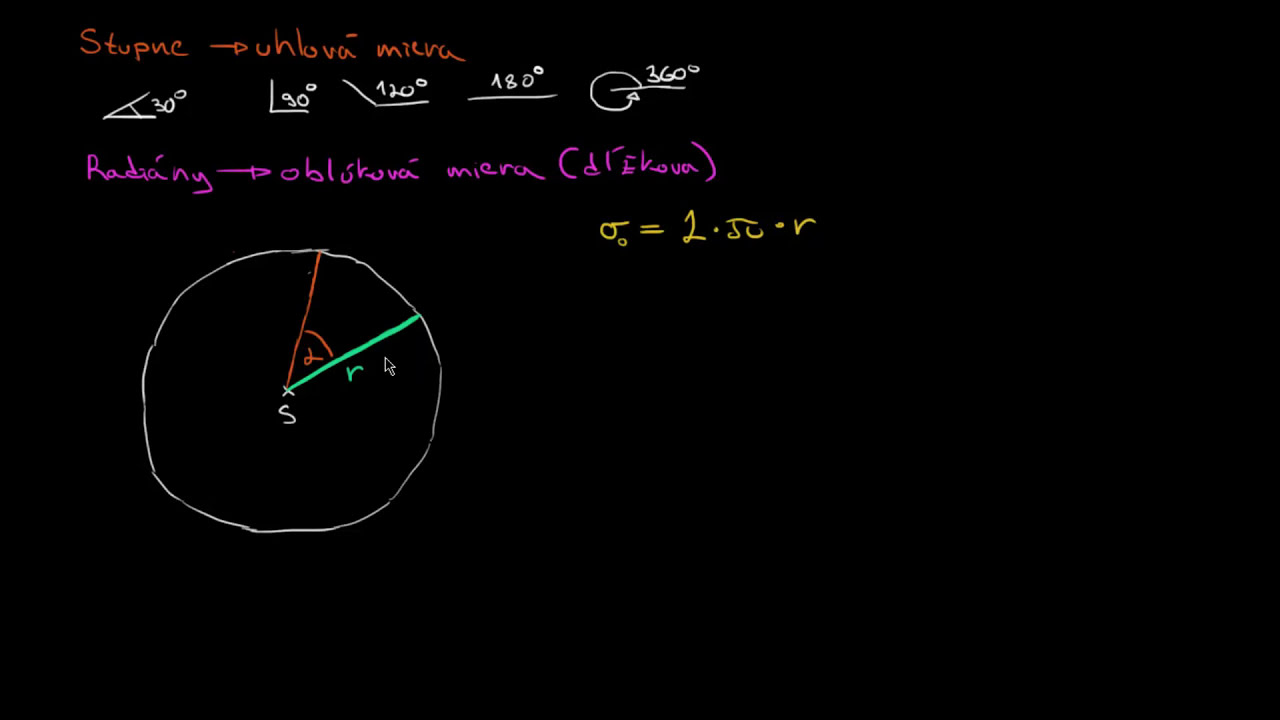 Stupne → uhlová miera
30° 90° 120° 180° 360°
Radiány → oblúková miera (dĺžková)
σ₀ = 2 · π · r
α
r
S